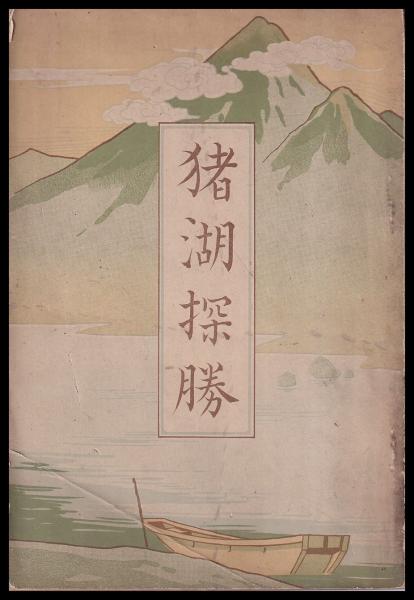 猪湖探勝